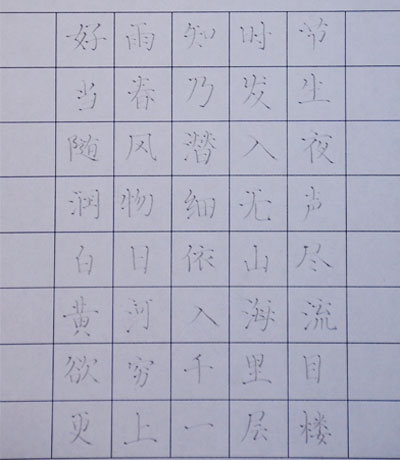 好雨知时节
当春乃发生
随风潜入夜
润物细无声
白日依山尽
黄河入海流
欲穷千里目
更上一层楼